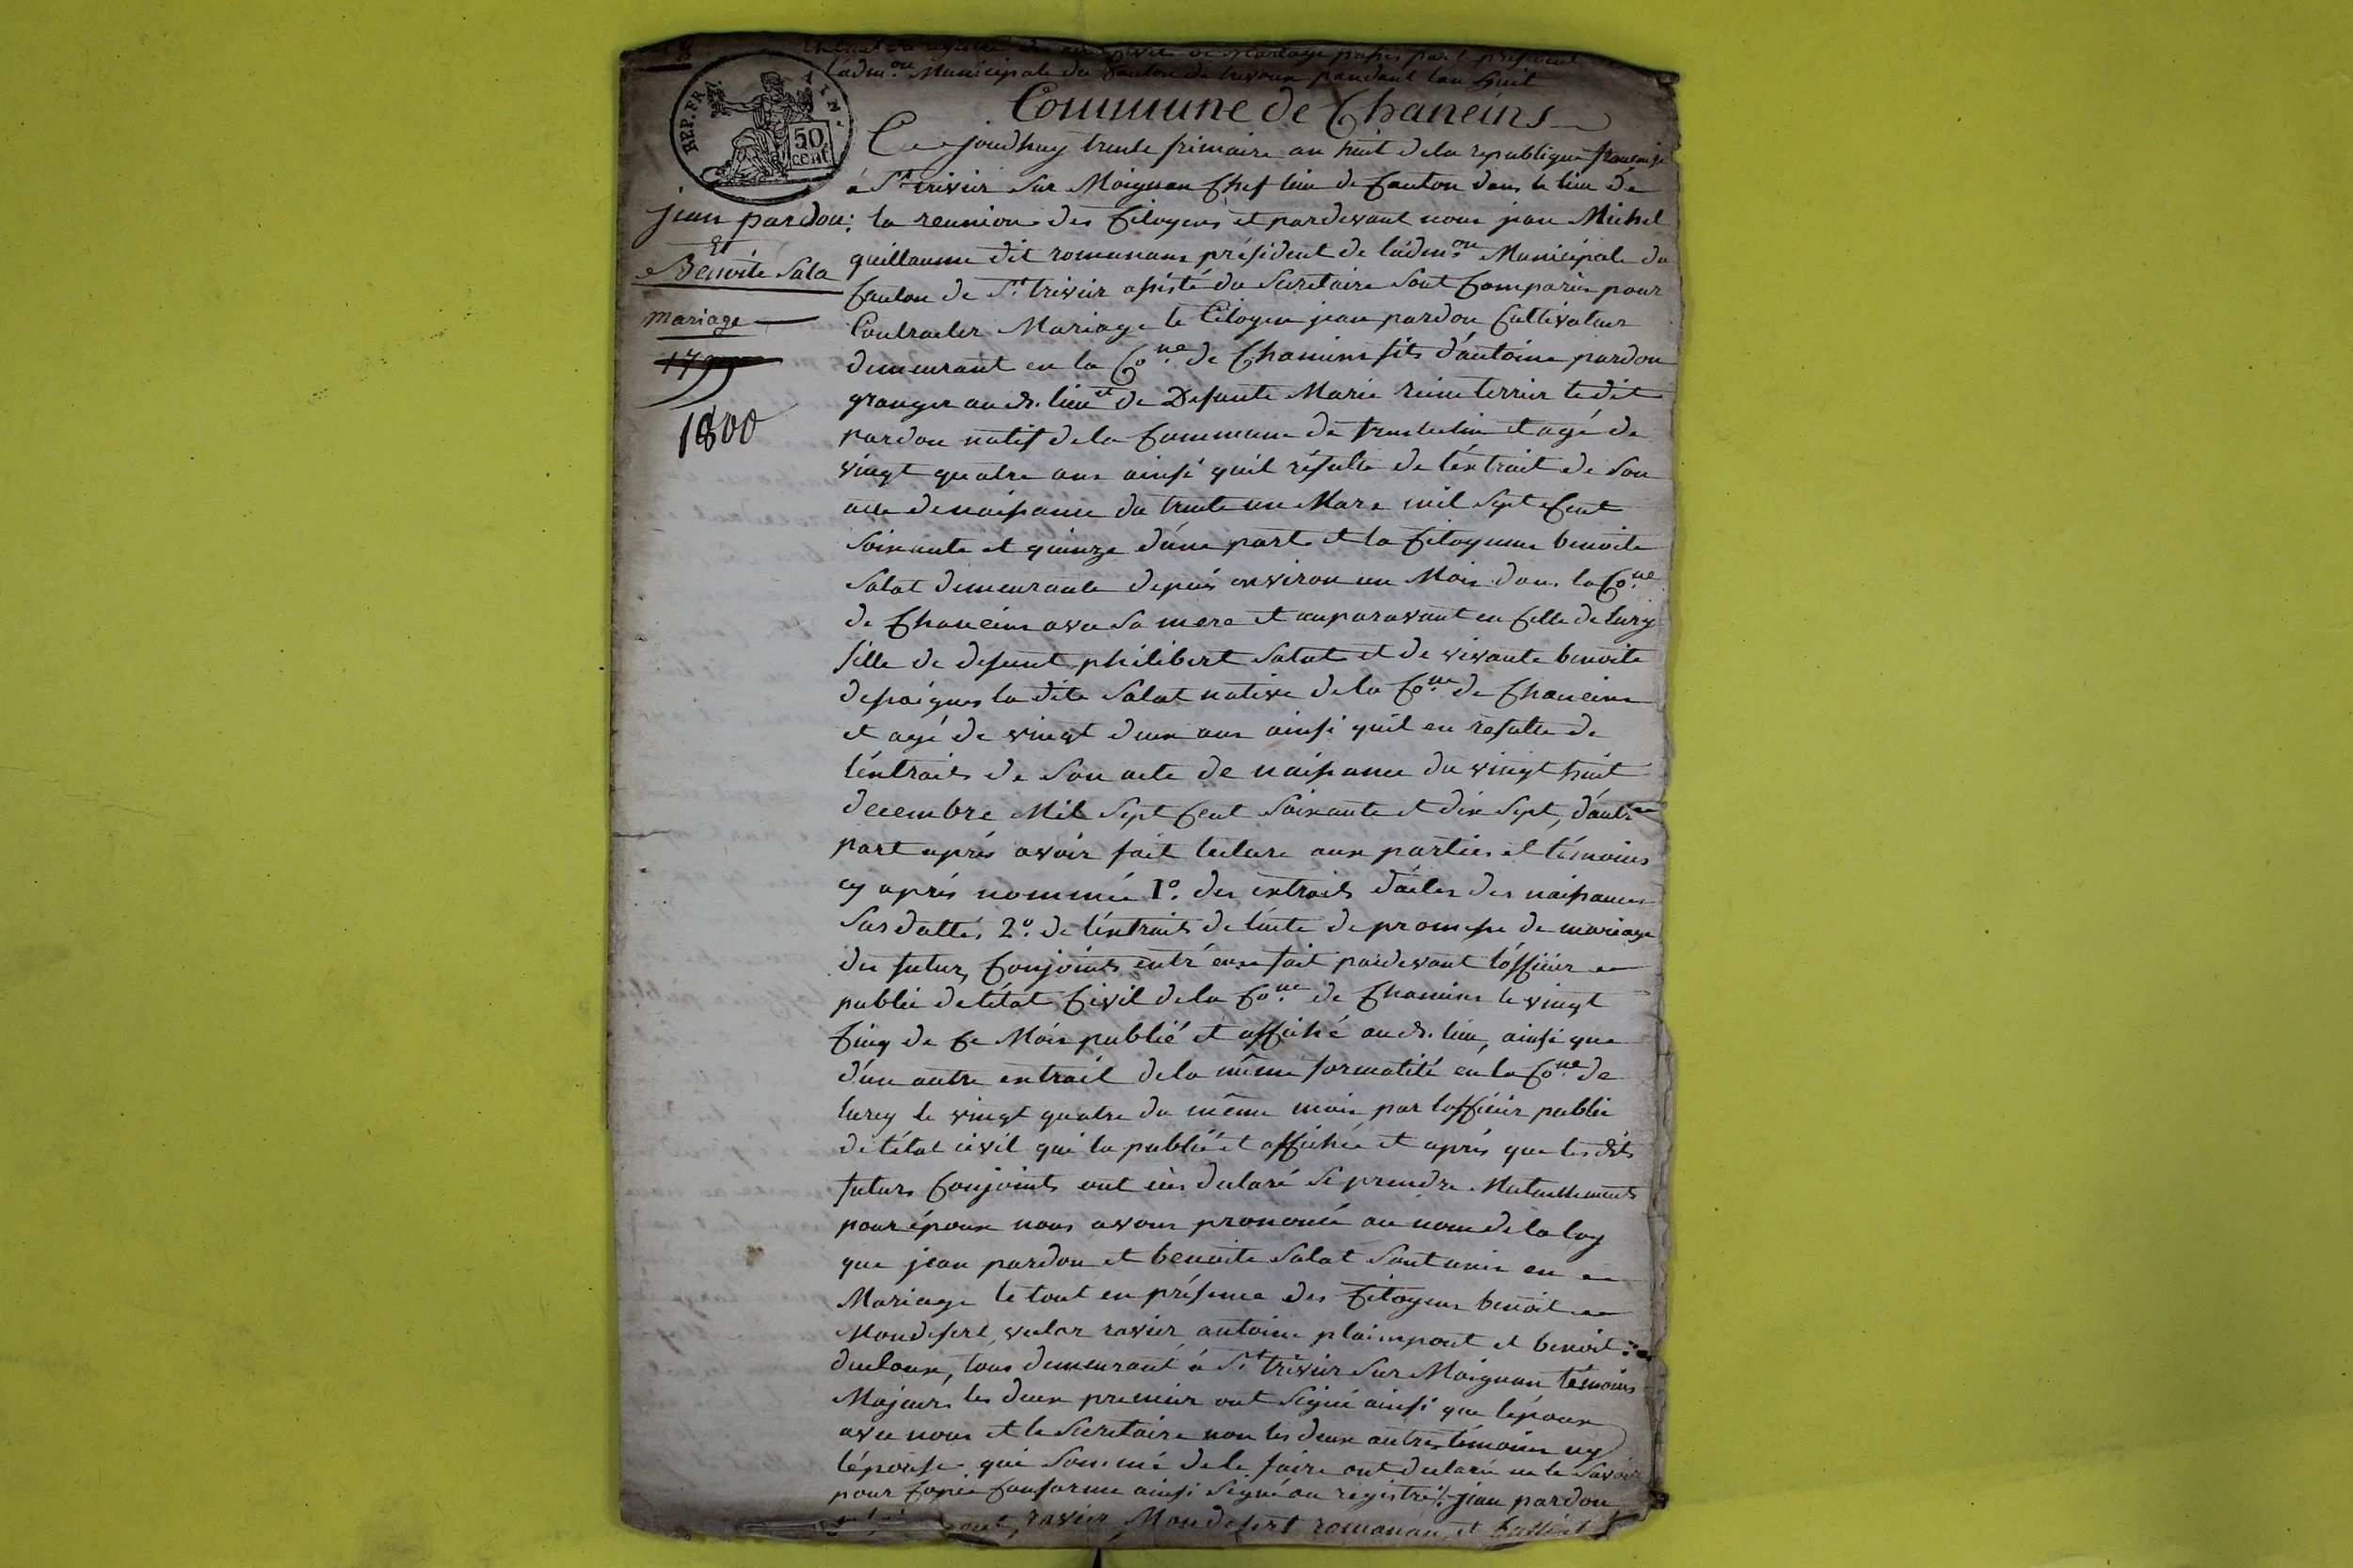 mariage passés par
l'adm.on Municipale du Canton de trevoux pendant lan huit
Commune de Chaneins
REP. FRA. 50 cent
Ce jourdhuy trente frimaire an huit de la republique francaise
à St trivier sur Moignan Chef lieu de Canton dans le lieu de
jean pardon: la reunion des Citoyens et pardevant nous jean Michel
Et
Benoite Sala
guillaume dit romanans président de l'adm.on Municipale du
Canton de St trivier assisté du Secretaire Sont Comparus pour
mariage
Contracter Mariage le Citoyen jean pardon Cultivateur
1799
demeurant en la Co.ne de Chaneins fils d'antoine pardon
granger au d. lieu et de Defunte Marie reine terrier le dit
1800
pardon natif de la Commune de et agé de
vingt quatre ans ainsi quil résulte de l'extrait de Son
acte de naissance du trente un Mars mil Sept Cent
Soixante et quinze d'une part et la Citoyenne benoite
Salat demeurante depuis environ un Mois dans la Co.ne
de Chaneins avec Sa mere et auparavant en Celle de lurcy
fille de defunt philibert Salat et de vivante benoite
la dite Salat native de la Co.ne de Chaneins
et agé de vingt deux ans ainsi quil en resulte de
l'extrait de Son acte de naissance du vingt huit
decembre Mil Sept Cent Soixante et dix Sept, d'autre
part après avoir fait lecture aux parties et témoins
cy après nommés 1o. des extraits d'actes des naissances
Susdattés 2o. de l'extrait de l'acte de promesse de mariage
des futurs Conjoints entr'eux fait pardevant l'officier
public de l'état Civil de la Co.ne de Chaneins le vingt
Cinq de Ce Mois publié et affiché au d. lieu, ainsi que
d'un autre extrait de la même formalité en la Co.ne de
lurcy le vingt quatre du même mois par l'officier public
de l'état civil qui la publié et affichée et après que les dits
futurs Conjoints ont eus declaré Se prendre Mutuellement
pour époux nous avons prononcé au nom de la loy
que jean pardon et benoite Salat Sont unis en
Mariage le tout en présence des Citoyens benoit
Mondesert, ravier antoine plainpont et benoit
ducloux, tous demeurant à St trivier Sur Moignan témoins
Majeurs les deux premier ont Signé ainsi que l'époux
avec nous et le Secretaire non les deux autres témoins ny
l'épouse qui Sommé de le faire ont declaré ne le Savoir
pour Copie Conforme ainsi Signé au registre jean pardon
ravier, Mondesert romanans et